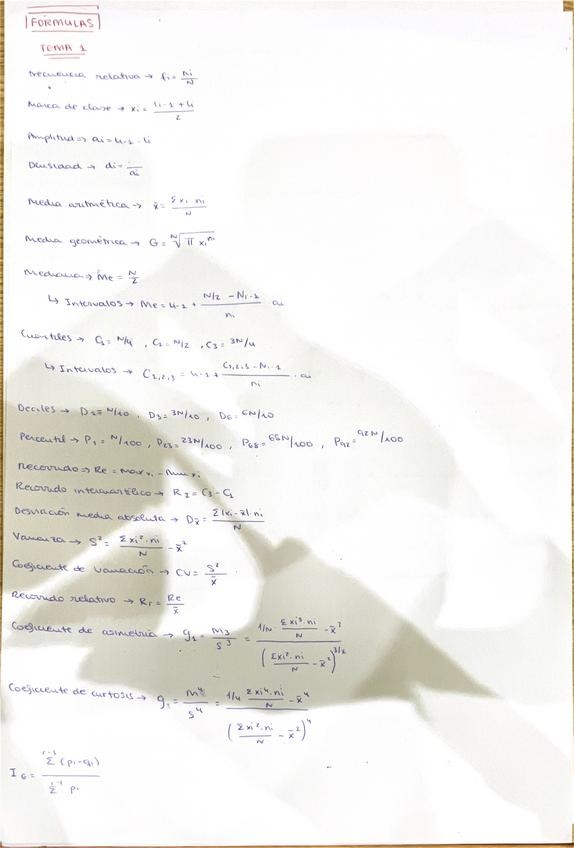 FÓRMULAS
TEMA 1
Frecuencia relativa → fi = ni/N
Marca de clase → xi = (Li-1 + Li)/2
Amplitud → ai = Li-1 - Li
Densidad → di = /ai
Media aritmética → x̄ = Σxi ni/N
Media geométrica → G = ᴺ√(π xi^ni)
Mediana → Me = N/2
↳ Intervalos → Me = Li-1 + (N/2 - Ni-1)/ni ai
Cuartiles → C1 = N/4, C2 = N/2, C3 = 3N/4
↳ Intervalos → C1,2,3 = Li-1 + (C1,2,3 - Ni-1)/ni · ai
Deciles → D1 = N/10, D3 = 3N/10, D6 = 6N/10
Percentil → P1 = N/100, P23 = 23N/100, P68 = 68N/100, P92 = 92N/100
Recorrido → Re = Max xi - Min xi
Recorrido intercuartílico → RI = C3 - C1
Desviación media absoluta → Dx̄ = Σ|xi - x̄|·ni/N
Varianza → S² = Σxi²·ni/N - x̄²
Coeficiente de variación → CV = S²/x̄
Recorrido relativo → Rr = Re/x̄
Coeficiente de asimetría → g1 = m3/S³ = (1/N · Σxi³·ni/N - x̄³)/(Σxi²·ni/N - x̄²)^3/2
Coeficiente de curtosis → g1 = m4/S⁴ = (1/4 Σxi⁴·ni/N - x̄⁴)/(Σxi²·ni/N - x̄²)⁴
IG = Σ(pi - qi)/Σ pi